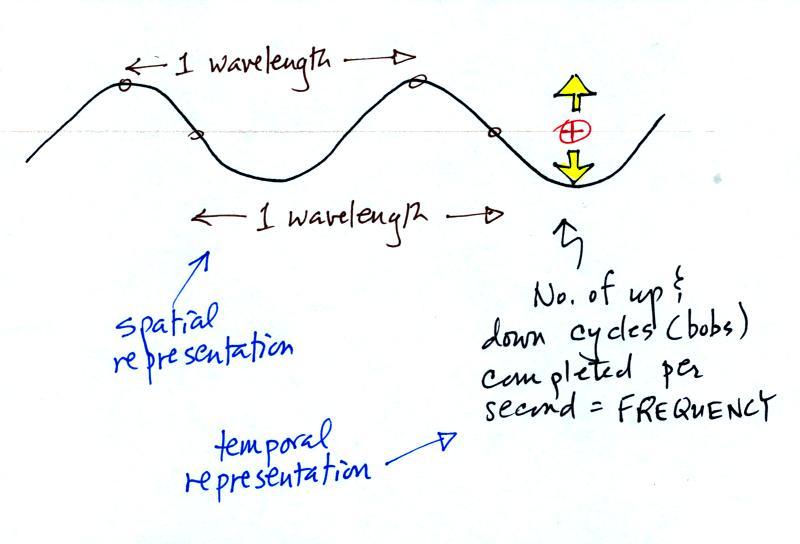 1 wavelength
1 wavelength
spatial
representation
No. of up &
down cycles (bobs)
completed per
second = FREQUENCY
temporal
representation